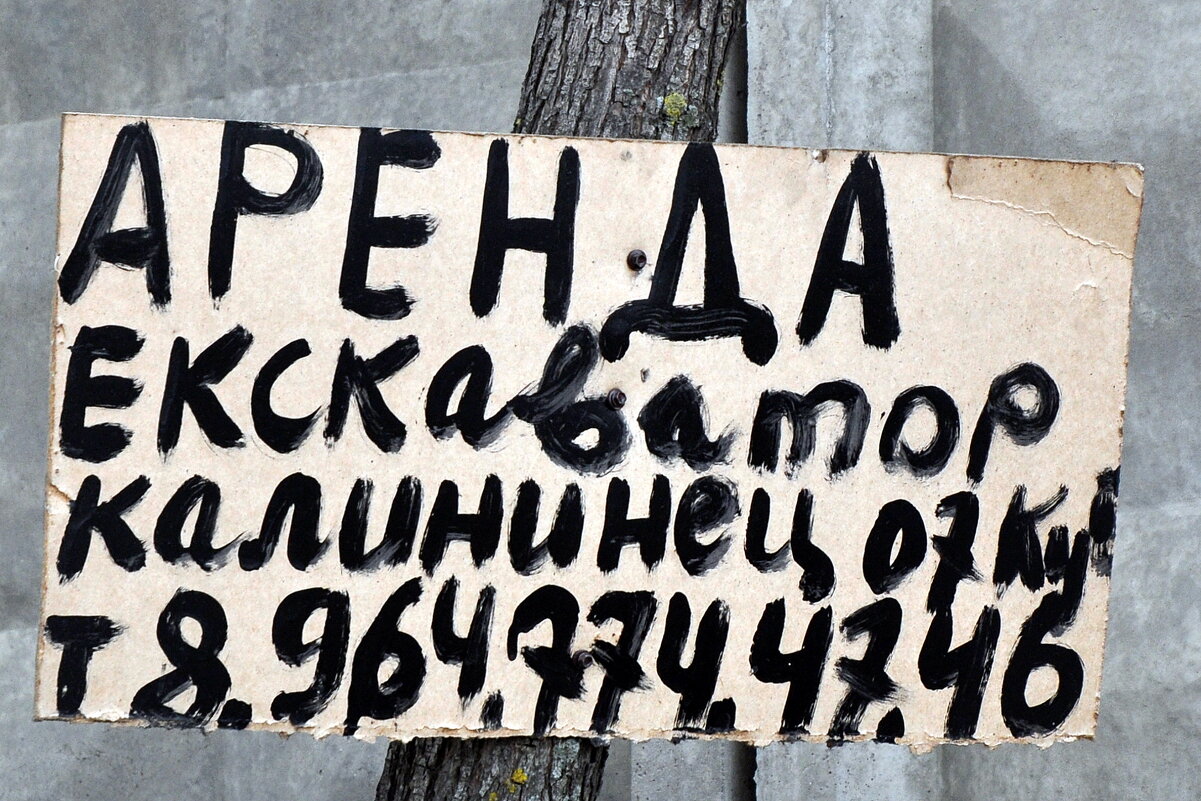 АРЕНДА
ЕКСКаваТОР
Калининец 07 Куб
Т 8.964.774.47.46